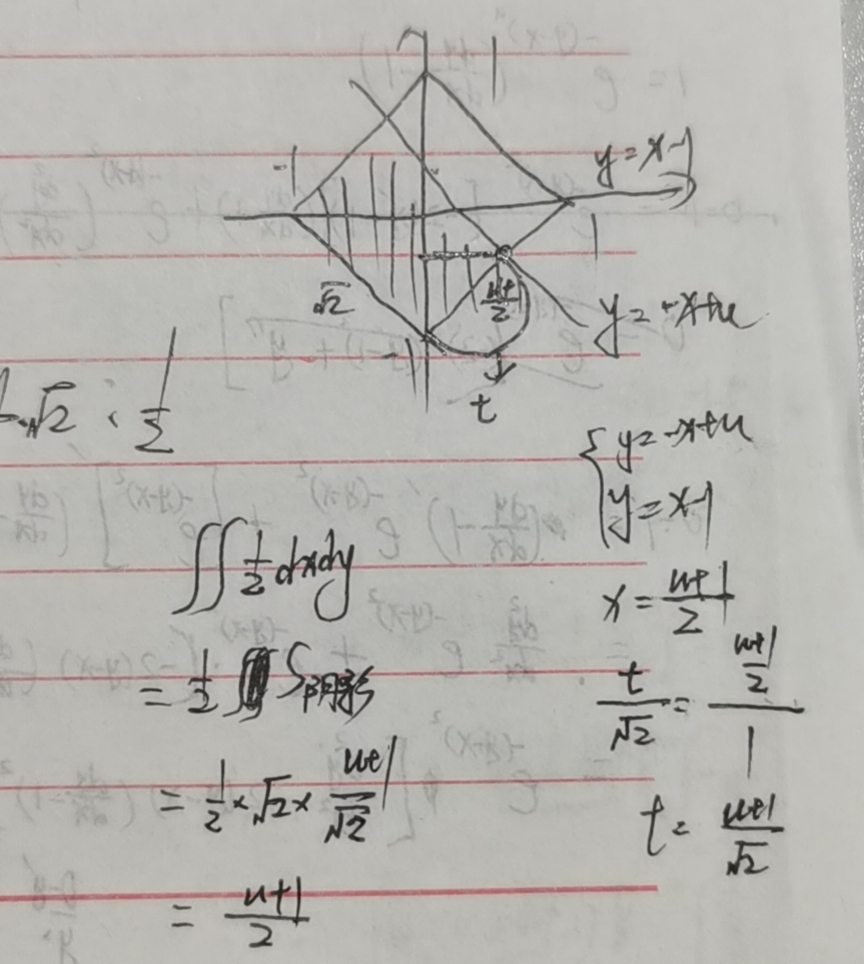 1
-1
y=x-1
1
√2
u+1/2
y=-x+u
-1
t
√2 · 1/2
{ y=-x+u
y=x-1
∬ 1/2 dxdy
x = u+1/2
= 1/2 S阴影
t/√2 = (u+1/2)/1
= 1/2 × √2 × u+1/√2
t = u+1/√2
= u+1/2